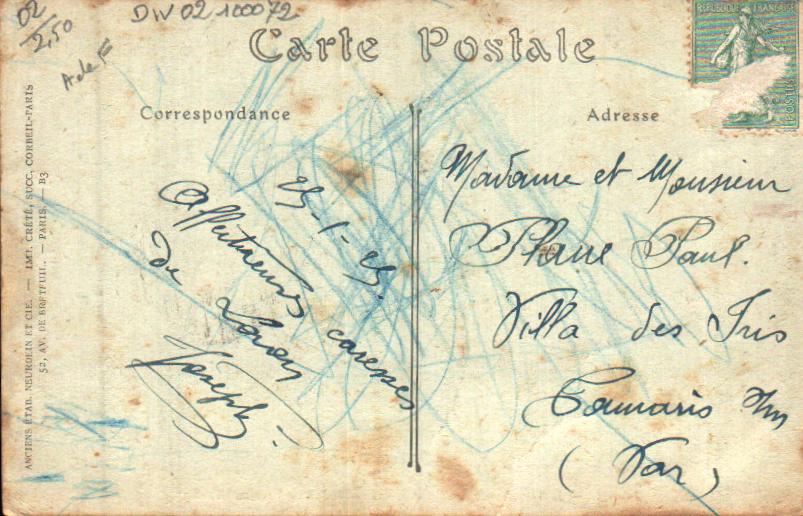 02
2,50
A de F
DIV 02 100072
RÉPUBLIQUE FRANÇAISE
POSTES
Carte Postale
Correspondance
Adresse
25-1-25.
Affectueuses caresses
de
Joseph
Madame et Monsieur
Plane Paul.
Villa des Iris
Tamaris s/m
(Var)
ANCIENS ÉTAB. NEURDEIN ET CIE. — IMP. CRÉTÉ, SUCC. CORBEIL-PARIS
52, AV. DE BRETEUIL. — PARIS. — B3